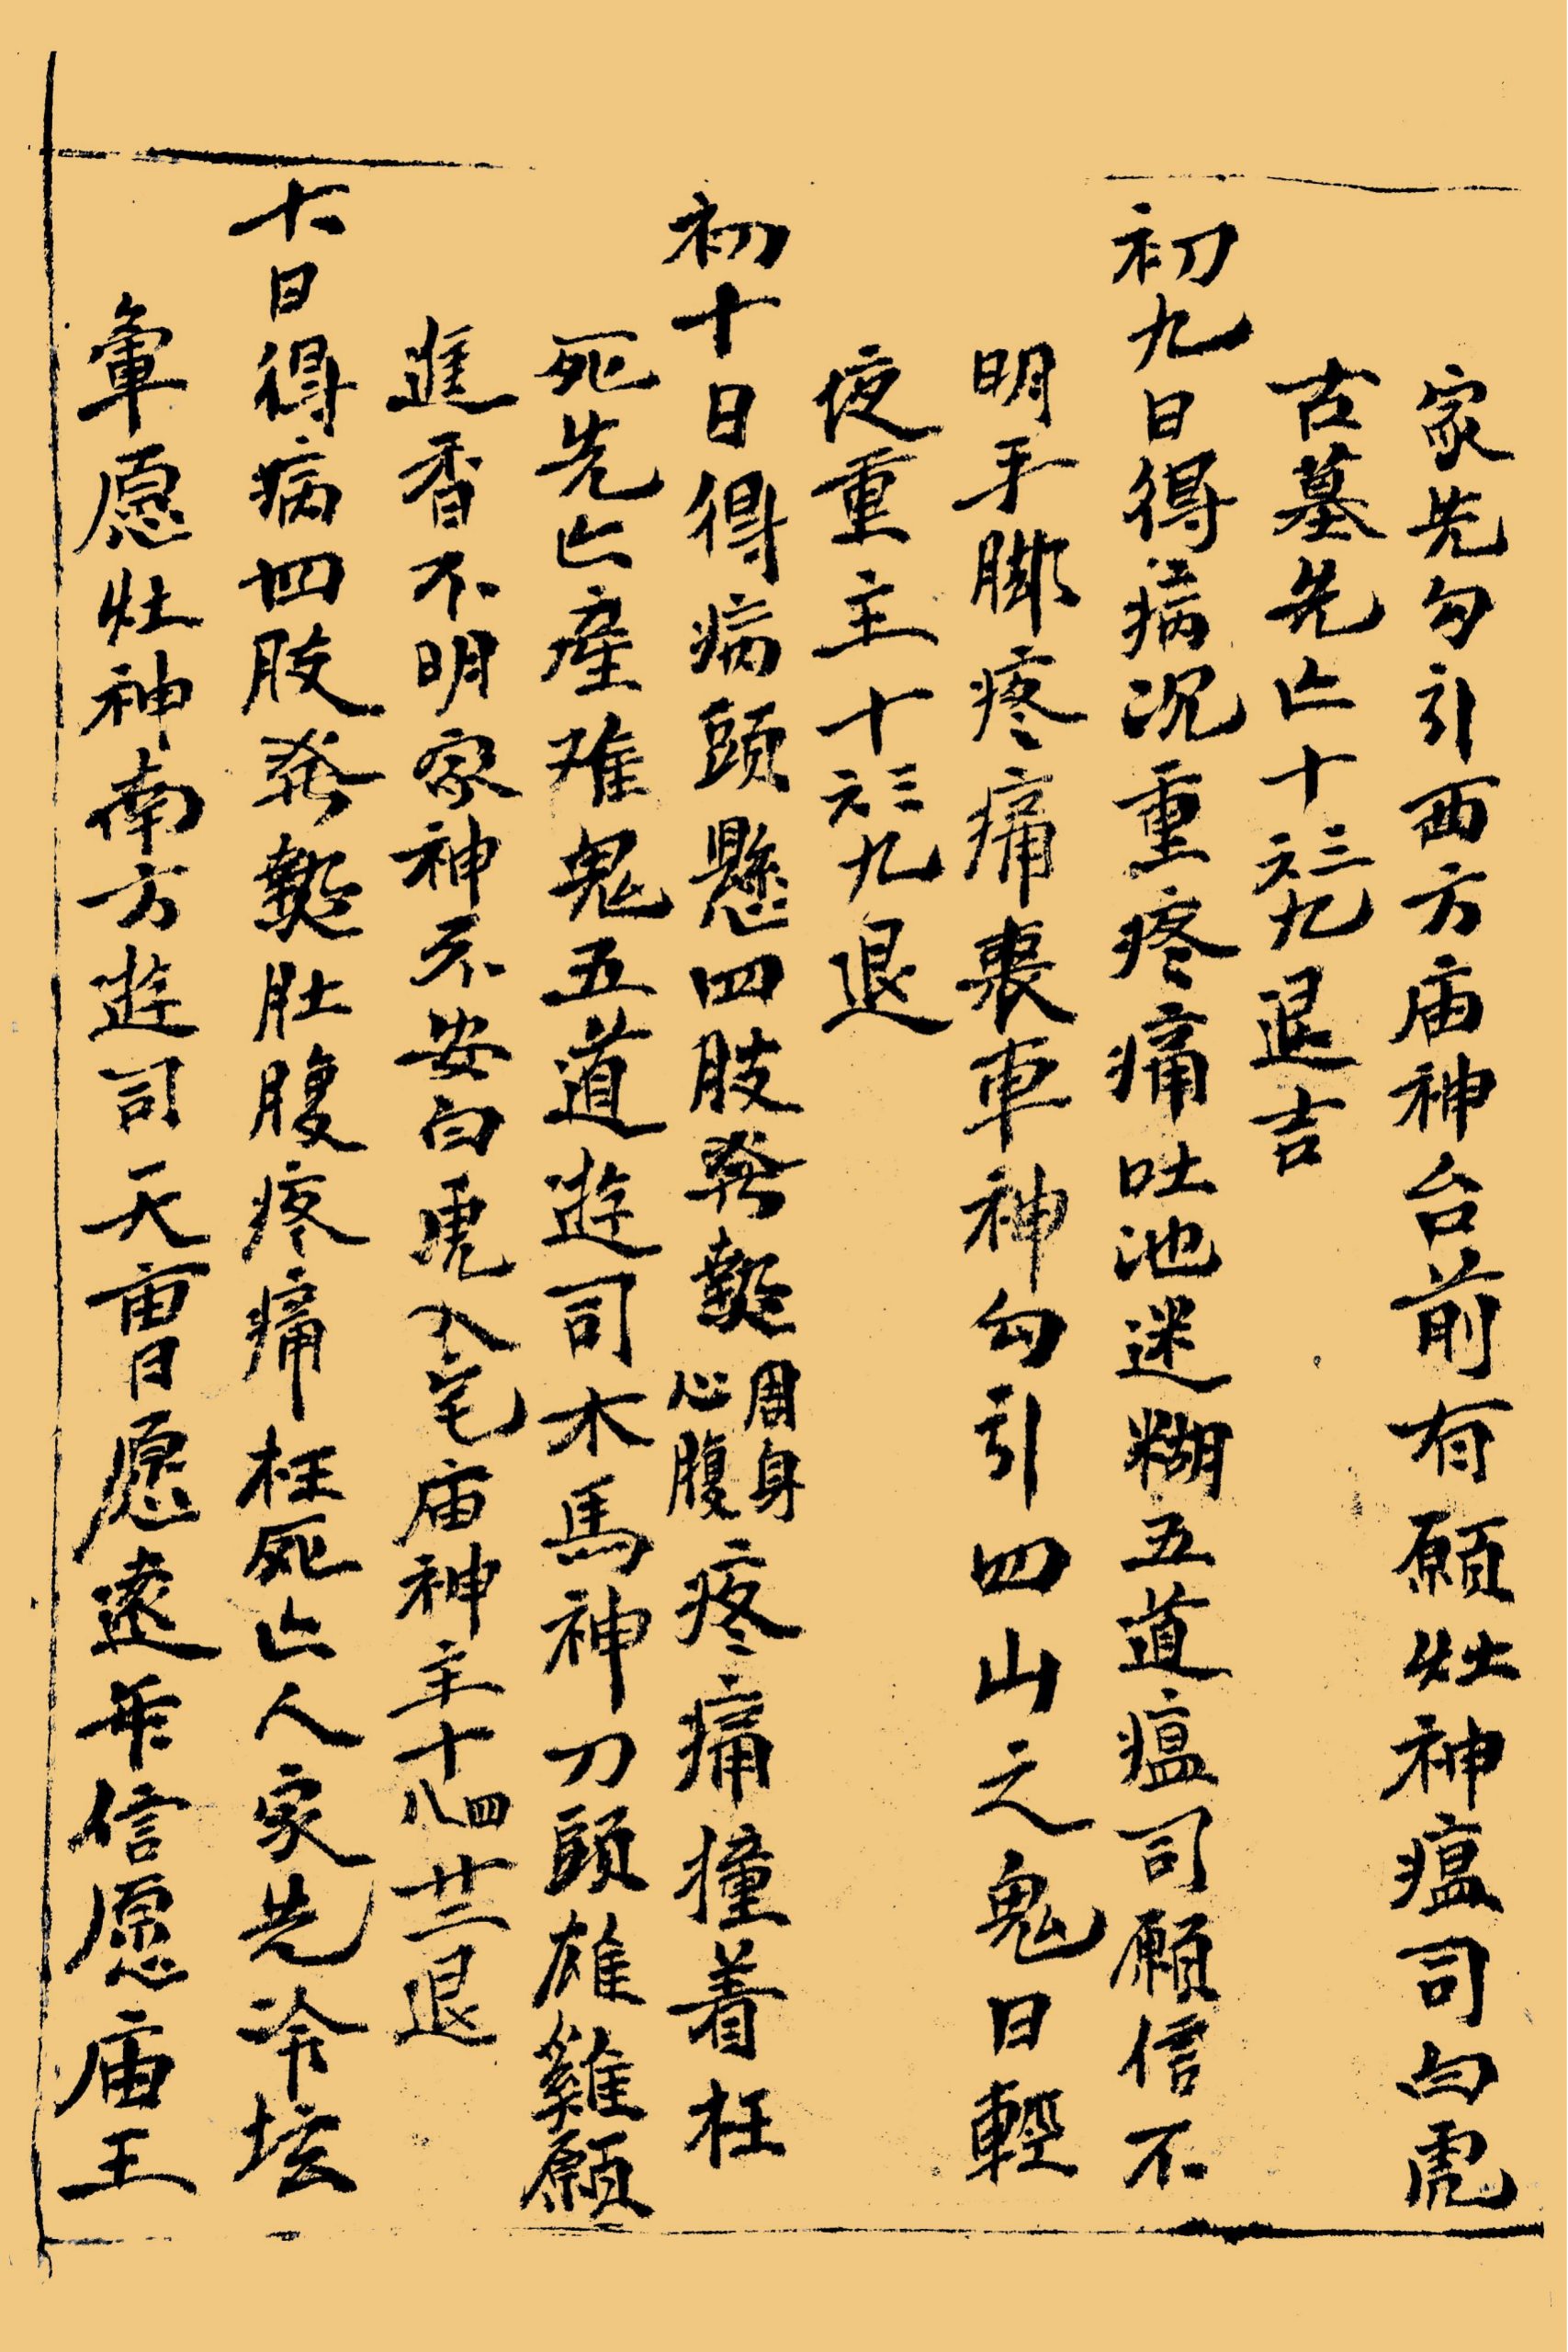 家先勾引西方庙神台前有願灶神瘟司白虎
古墓先亡十三六九退吉
初九日得病沉重疼痛吐池迷糊五道瘟司願信不
明手脚疼痛喪車神勾引四山之鬼日輕
夜重主十三六九退
初十日得病頭懸四肢發熱周身心腹疼痛撞着枉
死先亡產难鬼五道遊司木馬神刀頭雄雞願
進香不明家神不安白虎入宅庙神主十四八廿三退
十一日得病四肢發熱肚腹疼痛枉死亡人家先冷坛
軍愿灶神南方遊司天曹愿遠年信愿庙王